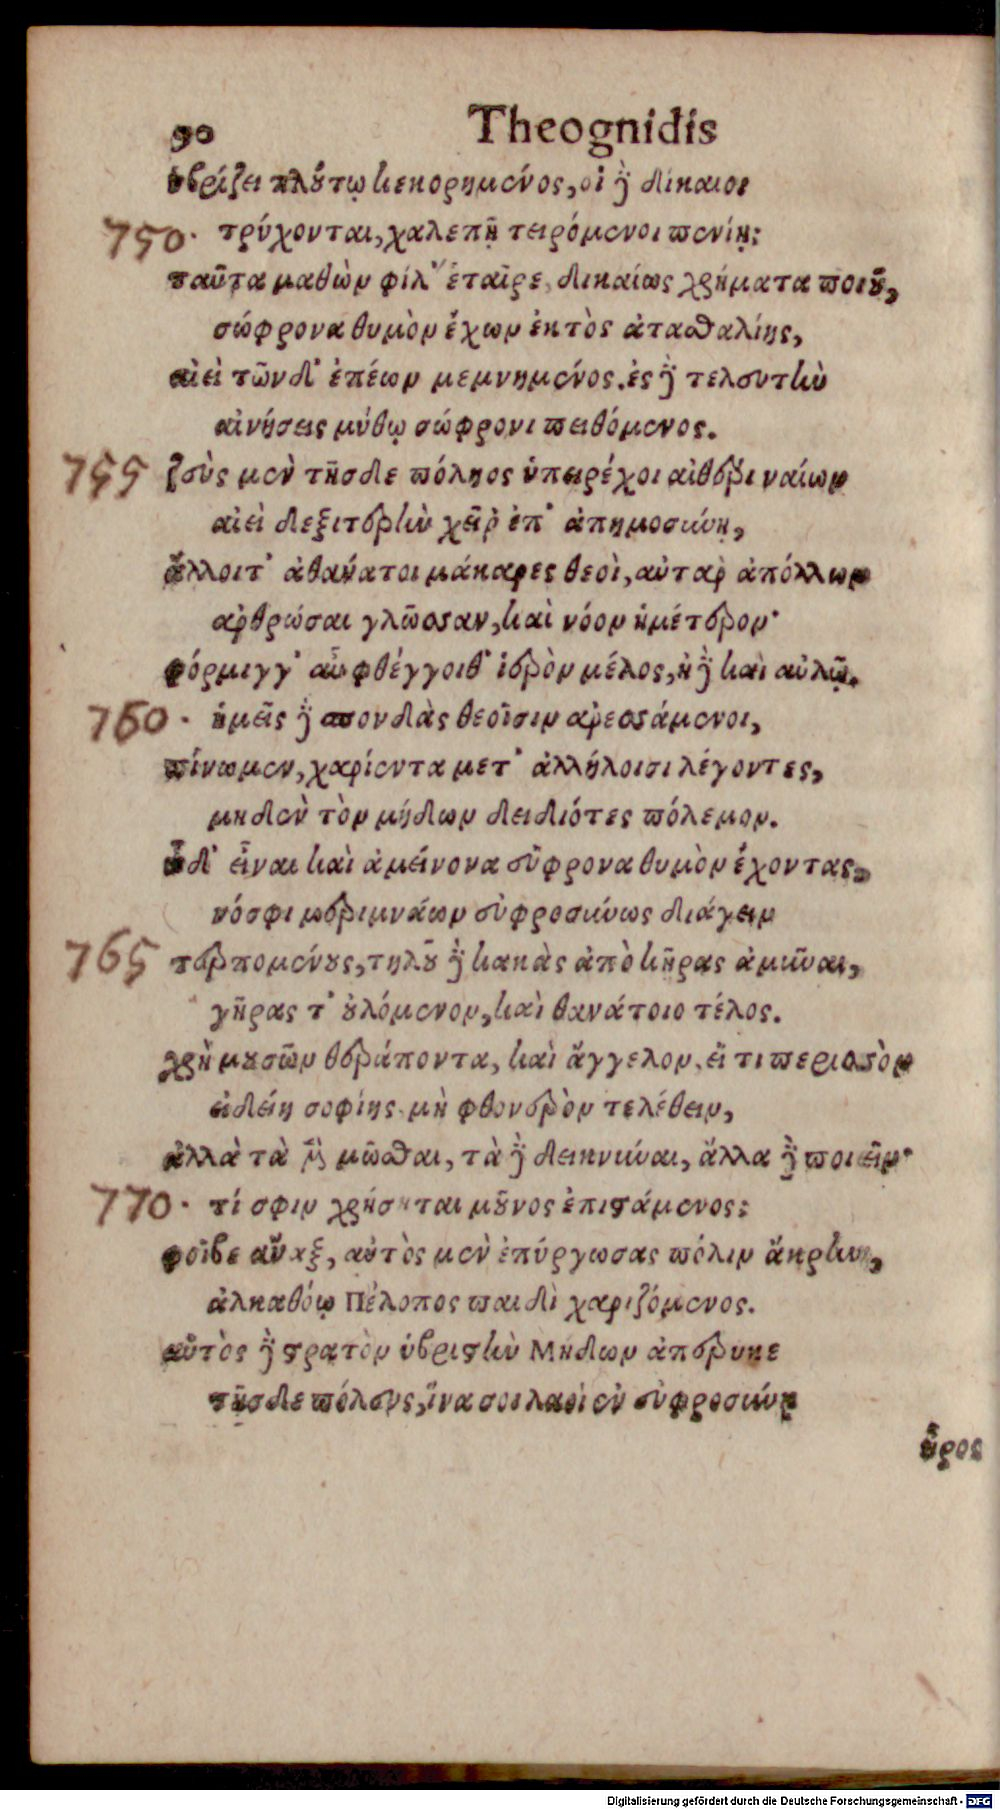 90 Theognidis
ὑβρίζει πλούτῳ κεκορημένος, οἱ δὲ δίκαιοι
750. τρύχονται, χαλεπῇ τειρόμενοι πενίῃ;
ταῦτα μαθὼν φίλ' ἑταῖρε, δικαίως χρήματα ποιοῦ,
σώφρονα θυμὸν ἔχων ἐκτὸς ἀτασθαλίης,
αἰεὶ τῶνδ' ἐπέων μεμνημένος. ἐς δὲ τελευτὴν
αἰνήσεις μύθῳ σώφρονι πειθόμενος.
755 ζεὺς μὲν τῆσδε πόληος ὑπειρέχοι αἰθέρι ναίων
αἰεὶ δεξιτερὴν χεῖρ' ἐπ' ἀπημοσύνῃ,
ἄλλοιτ' ἀθανάτοι μάκαρες θεοὶ, αὐτὰρ ἀπόλλων
ἀρθρώσαι γλῶσσαν, καὶ νόον ἡμέτερον·
φόρμιγγ' αὖ φθέγγοιθ' ἱερὸν μέλος, ἠδὲ καὶ αὐλῷ.
760. ἡμεῖς δὲ σπονδὰς θεοῖσιν ἀρεσσάμενοι,
πίνωμεν, χαρίεντα μετ' ἀλλήλοισι λέγοντες,
μηδὲν τὸν μήδων δειδιότες πόλεμον.
ὧδ' εἶναι καὶ ἀμείνονα εὔφρονα θυμὸν ἔχοντας,
νόσφι μεριμνάων εὐφροσύνως διάγειν
765 τερπομένους, τηλοῦ δὲ κακὰς ἀπὸ κῆρας ἀμῦναι,
γῆρας τ' οὐλόμενον, καὶ θανάτοιο τέλος.
χρὴ μουσῶν θεράποντα, καὶ ἄγγελον, εἴ τι περισσὸν
εἰδείη σοφίης μὴ φθονερὸν τελέθειν,
ἀλλὰ τὰ μὲν μῶσθαι, τὰ δὲ δεικνύναι, ἄλλα δὲ ποιεῖν·
770. τί σφιν χρήσηται μοῦνος ἐπιστάμενος;
φοῖβε ἄναξ, αὐτὸς μὲν ἐπύργωσας πόλιν ἄκρην,
ἀλκαθόῳ Πέλοπος παιδὶ χαριζόμενος.
αὐτὸς δὲ στρατὸν ὑβριστὴν Μήδων ἀπέρυκε
τῆσδε πόλευς, ἵνα σοι λαοὶ ἐν εὐφροσύνῃ
ἦρος
Digitalisierung gefördert durch die Deutsche Forschungsgemeinschaft - DFG